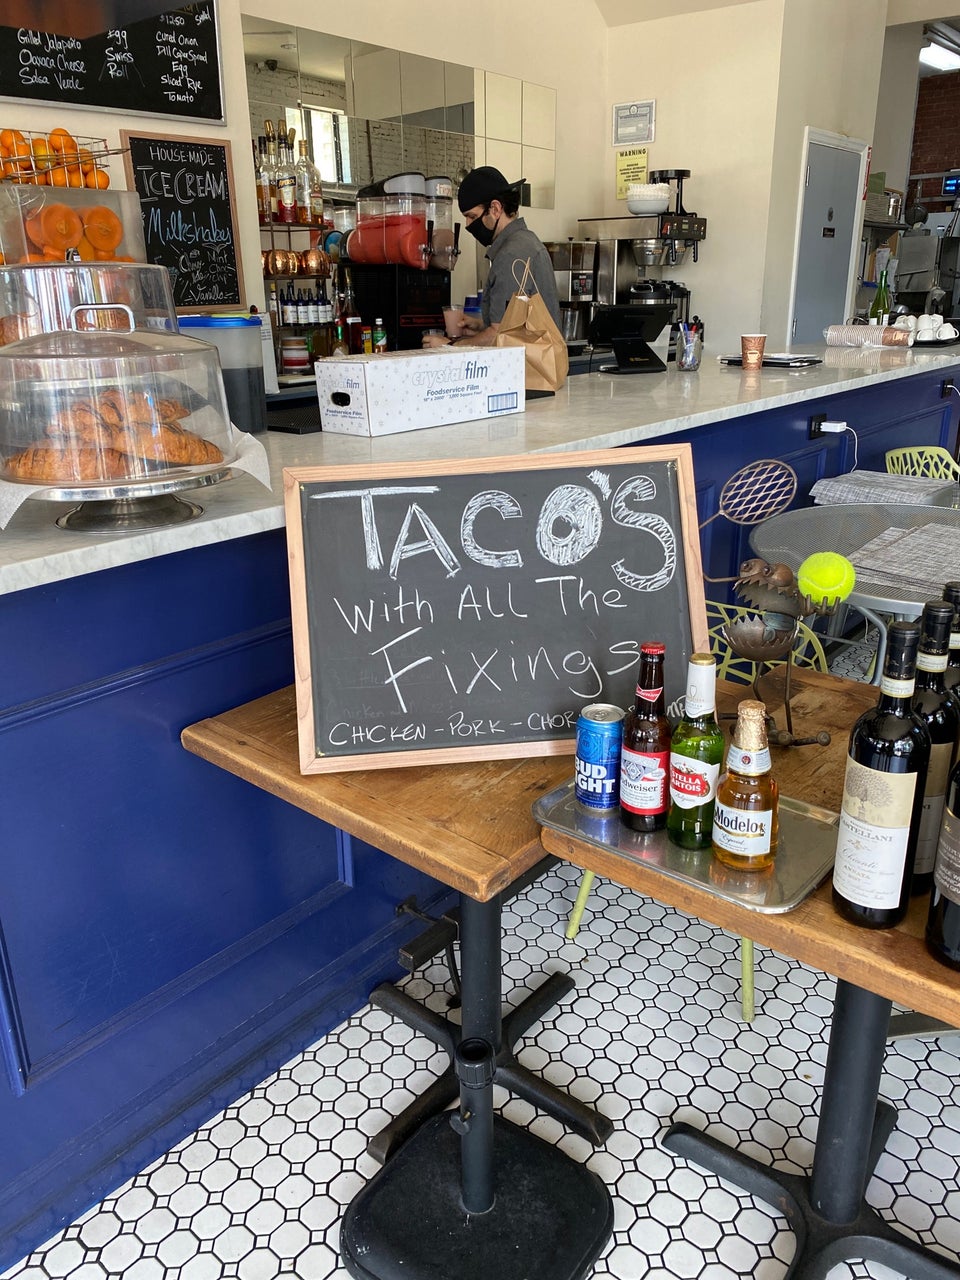 $12.50 Salad
Grilled Jalapeño
Oaxaca Cheese
Salsa Verde
Egg
Swiss
Roll
Cured Onion
Dill Caper Spread
Egg
Sliced Rye
Tomato
HOUSE-MADE
ICE CREAM
Milkshakes
Vanilla
WARNING
crystalfilm
crystalfilm
Foodservice Film
Foodservice Film
18" x 2000'
TACO'S
With ALL The
Fixings
CHICKEN - PORK - CHOR
BUD
LIGHT
Budweiser
Budweiser
STELLA
ARTOIS
Modelo
Especial
CASTELLANI
Chianti